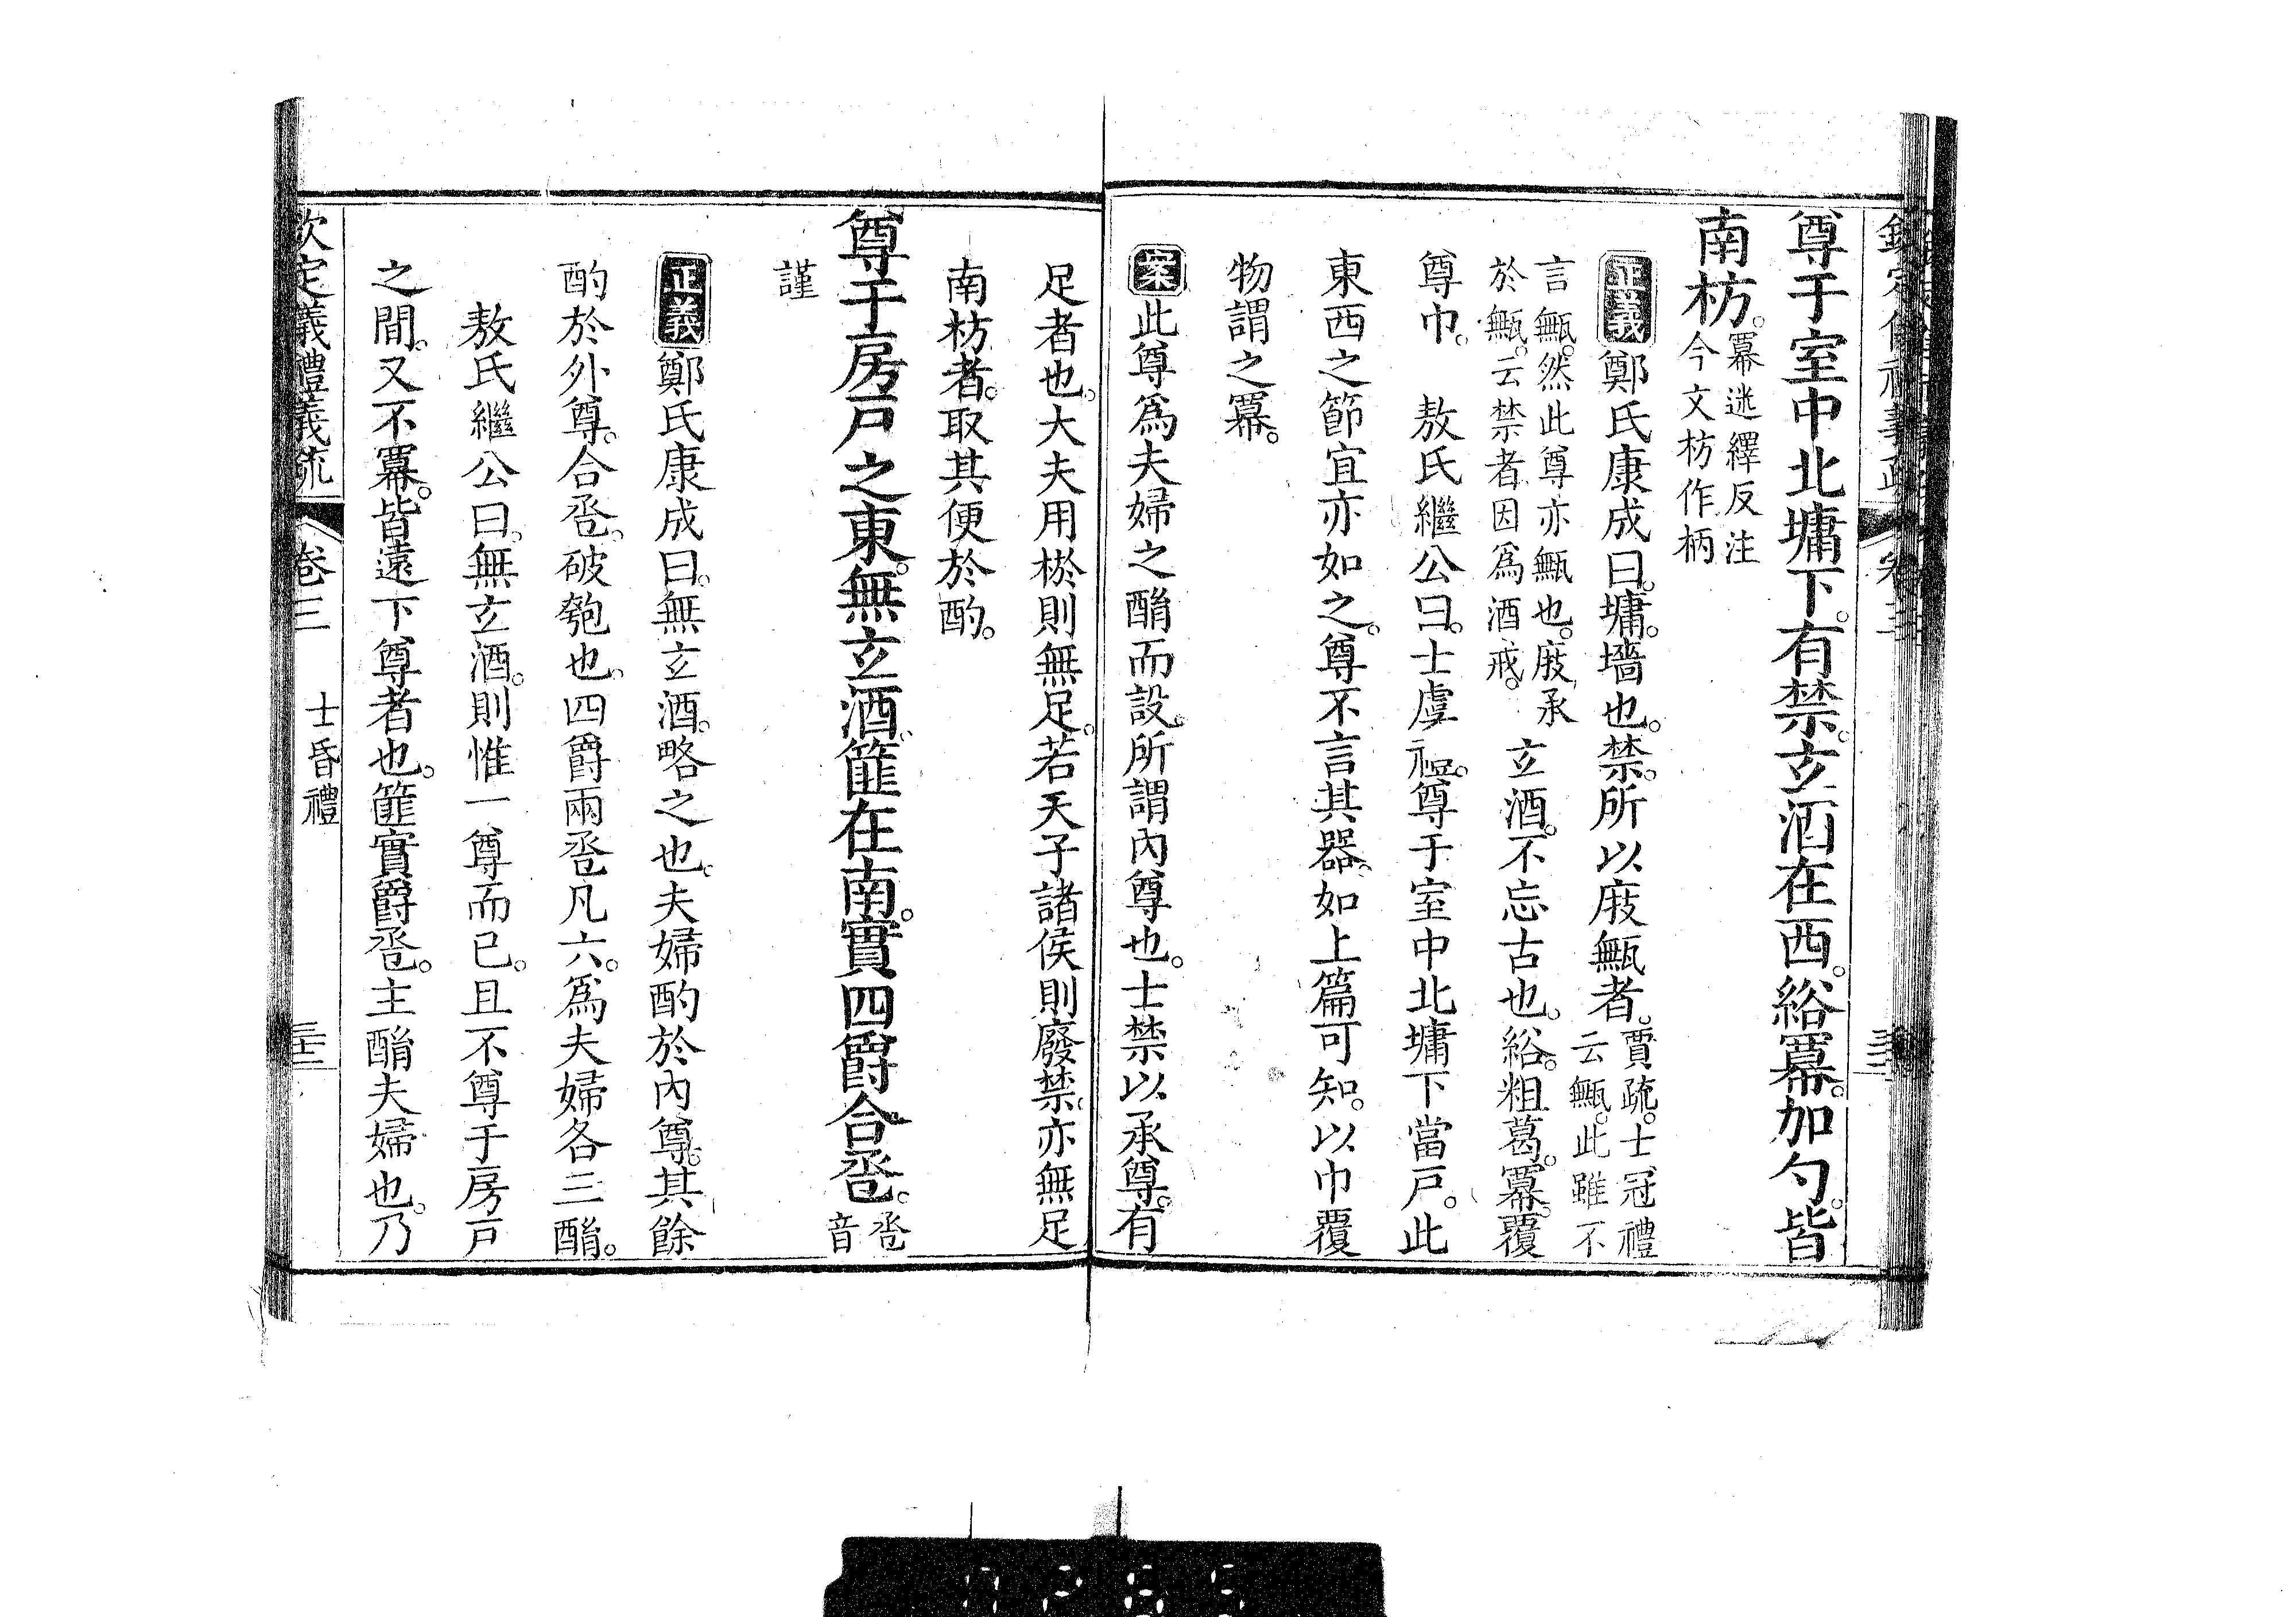 尊于室中北墉下。有禁。玄酒在西。綌冪。加勺。皆
南枋。冪迷繹反注
今文枋作柄
正義鄭氏康成曰。墉。墻也。禁。所以庪甒者。賈疏。士冠禮
云甒。此雖不
言甒。然此尊亦甒也。庪承
於甒。云禁者因爲酒戒。玄酒。不忘古也。綌。粗葛。冪。覆
尊巾。 敖氏繼公曰。士虞禮。尊于室中北墉下當戶。此
東西之節宜亦如之。尊不言其器。如上篇可知。以巾覆
物謂之冪。
案此尊爲夫婦之酳而設。所謂內尊也。士禁以承尊。有
足者也。大夫用棜則無足。若天子諸侯則廢禁。亦無足
南枋者。取其便於酌。
尊于房戶之東。無玄酒。篚在南。實四爵合卺。卺
音
謹
正義鄭氏康成曰。無玄酒。略之也。夫婦酌於內尊。其餘
酌於外尊。合卺。破匏也。四爵兩卺凡六。爲夫婦各三酳。
敖氏繼公曰。無玄酒。則惟一尊而已。且不尊于房戶
之間。又不冪。皆遠下尊者也。篚實爵卺。主酳夫婦也。乃
欽定儀禮義疏 卷三 士昏禮 三十二